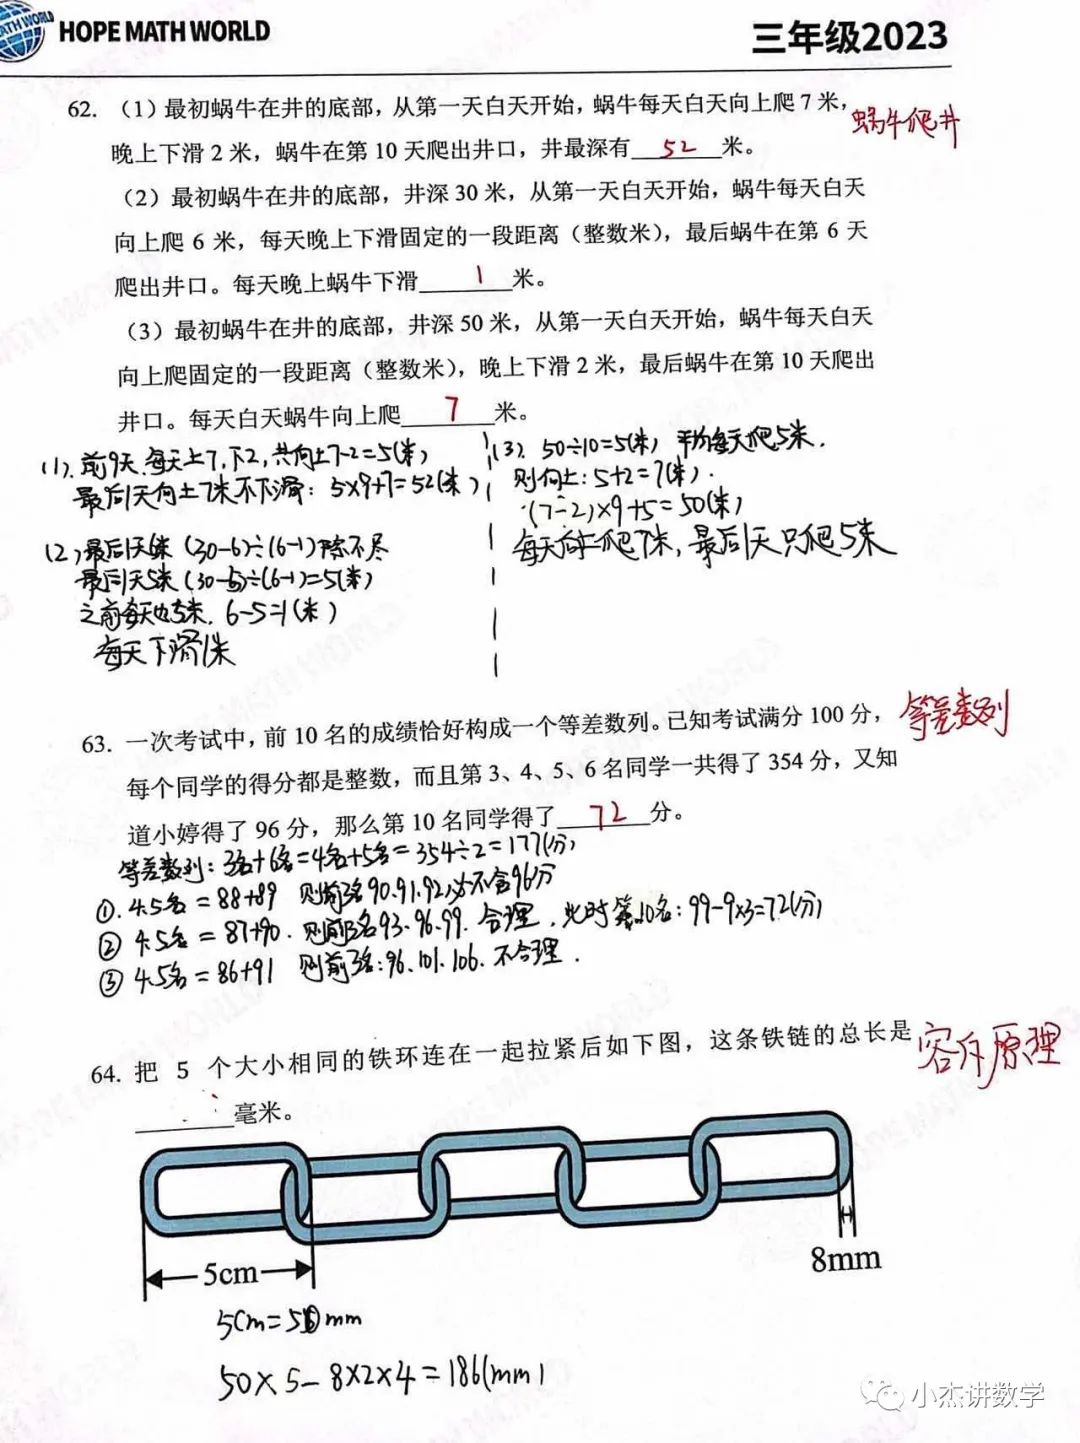 HOPE MATH WORLD
三年级2023
62. （1）最初蜗牛在井的底部，从第一天白天开始，蜗牛每天白天向上爬 7 米，
蜗牛爬井
晚上下滑 2 米，蜗牛在第 10 天爬出井口，井最深有 52 米。
（2）最初蜗牛在井的底部，井深 30 米，从第一天白天开始，蜗牛每天白天
向上爬 6 米，每天晚上下滑固定的一段距离（整数米），最后蜗牛在第 6 天
爬出井口。每天晚上蜗牛下滑 1 米。
（3）最初蜗牛在井的底部，井深 50 米，从第一天白天开始，蜗牛每天白天
向上爬固定的一段距离（整数米），晚上下滑 2 米，最后蜗牛在第 10 天爬出
井口。每天白天蜗牛向上爬 7 米。
(1). 前9天.每天上7,下2,共向上7-2=5(米)
最后1天向上7米不下滑：5×9+7=52(米)
(2) 最后1天6米 (30-6)÷(6-1)除不尽
最后1天5米 (30-5)÷(6-1)=5(米)
之前每天也5米. 6-5=1(米)
每天下滑1米
(3). 50÷10=5(米) 平均每天爬5米.
则向上：5+2=7(米).
(7-2)×9+5=50(米)
每天向上爬7米，最后1天只爬5米
63. 一次考试中，前 10 名的成绩恰好构成一个等差数列。已知考试满分 100 分，
等差数列
每个同学的得分都是整数，而且第 3、4、5、6 名同学一共得了 354 分，又知
道小婷得了 96 分，那么第 10 名同学得了 72 分。
等差数列：3名+6名=4名+5名=354÷2=177(分)
①. 4.5名=88+89 则前3名90.91.92,必不含96分
② 4.5名=87+90. 则前3名93.96.99. 合理，此时第10名：99-9×3=72(分)
③ 4.5名=86+91 则前3名:96.101.106.不合理.
64. 把 5 个大小相同的铁环连在一起拉紧后如下图，这条铁链的总长是
容斥原理
毫米。
5cm
8mm
5cm=50mm
50×5-8×2×4=186(mm)
小杰讲数学